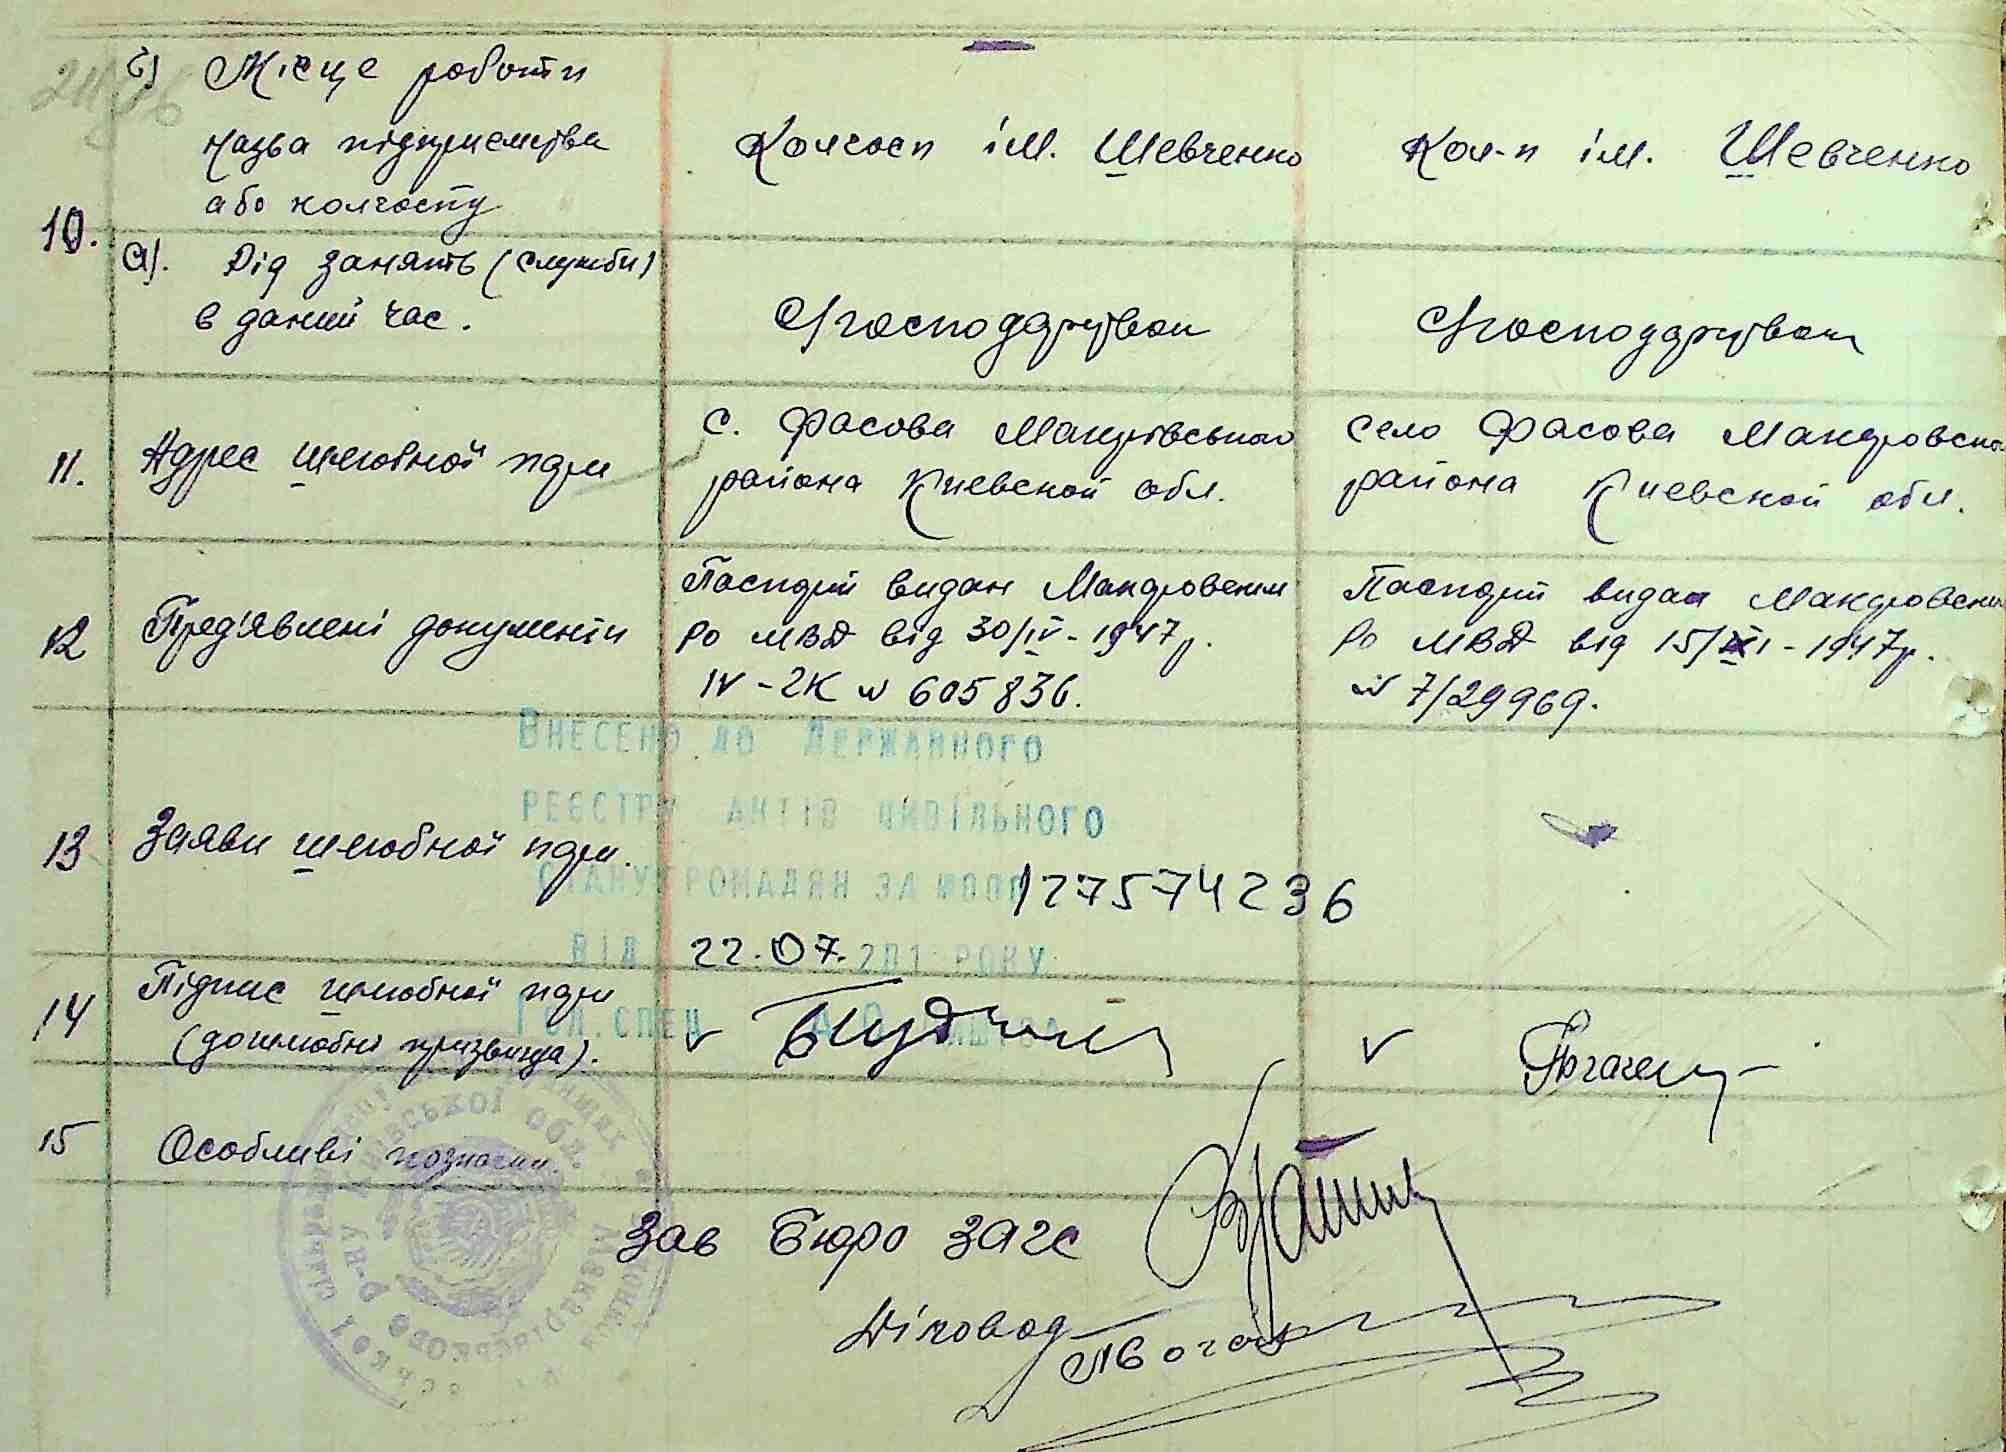 б) Місце роботи
назва підприємства
або колгоспу
Колгосп ім. Шевченко
Кол-п ім. Шевченко
10.
а). Рід занять (служби)
в даний час.
11. Адрес шлюбной пари
с. Фасова Макарівського
района Киевской обл.
село Фасова
района Киевской обл.
12 Пред'явлені документи
Паспорт видан Макаровским
РО МВД від 30/IV - 1947р.
IV - 2К № 605836.
Паспорт видан Макаровским
РО МВД від 15/ - 1947р.
№ 7/29969.
ВНЕСЕНО ДО ДЕРЖАВНОГО
РЕЄСТРУ АКТІВ ЦИВІЛЬНОГО
СТАНУ ГРОМАДЯН ЗА 127574236
ВІД 22.07. 201 РОКУ
ГОЛ. СПЕЦ
13 Заяви шлюбної пари.
14 Підпис шлюбної пари
(дошлюбні прізвища).
15 Особливі позначки.
Зав Бюро ЗАГС
Діловод